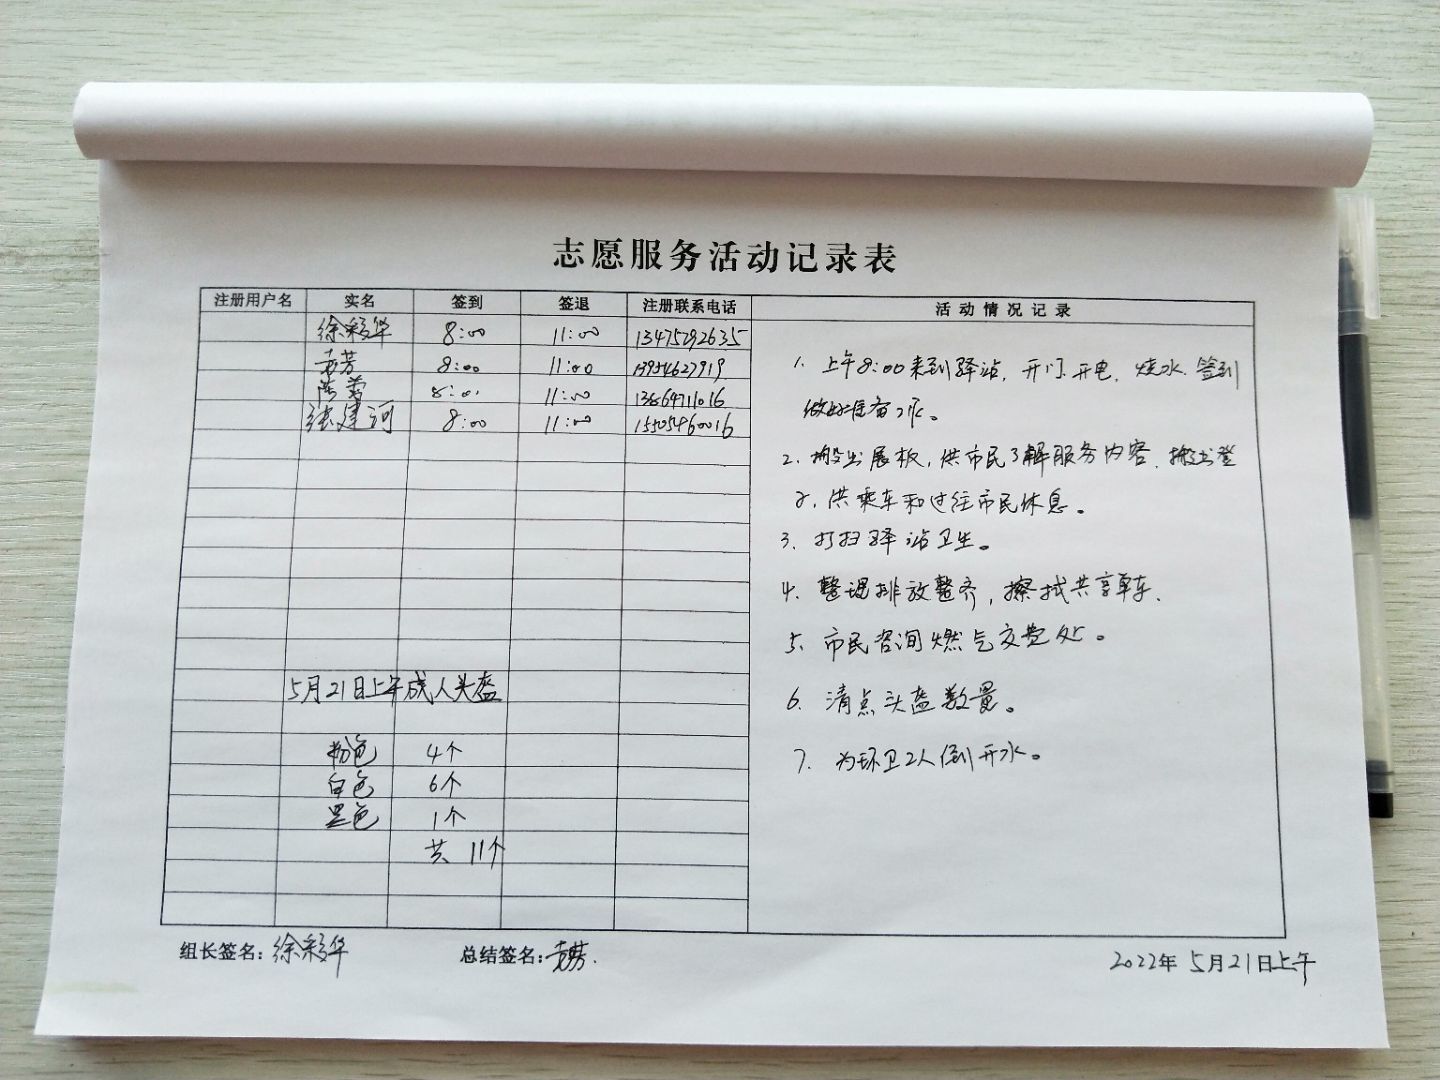 志愿服务活动记录表
注册用户名 实名 签到 签退 注册联系电话 活动情况记录
徐彩华 8:00 11:00 13475292635
芳 8:00 11:00 13954627919
陈莺 8:00 11:00 13864711016
张建河 8:00 11:00 15505460016
5月21日上午成人头盔
粉色 4个
白色 6个
黑色 1个
共 11个
1. 上午8:00来到驿站, 开门.开电, 烧水.签到
做好准备工作。
2. 搬出展板, 供市民了解服务内容, 搬出凳
子, 供乘车和过往市民休息。
3. 打扫驿站卫生。
4. 整理排放整齐, 擦拭共享单车.
5. 市民咨询燃气交费处。
6. 清点头盔数量。
7. 为环卫工人倒开水。
组长签名: 徐彩华 总结签名: 芳. 2022年5月21日上午